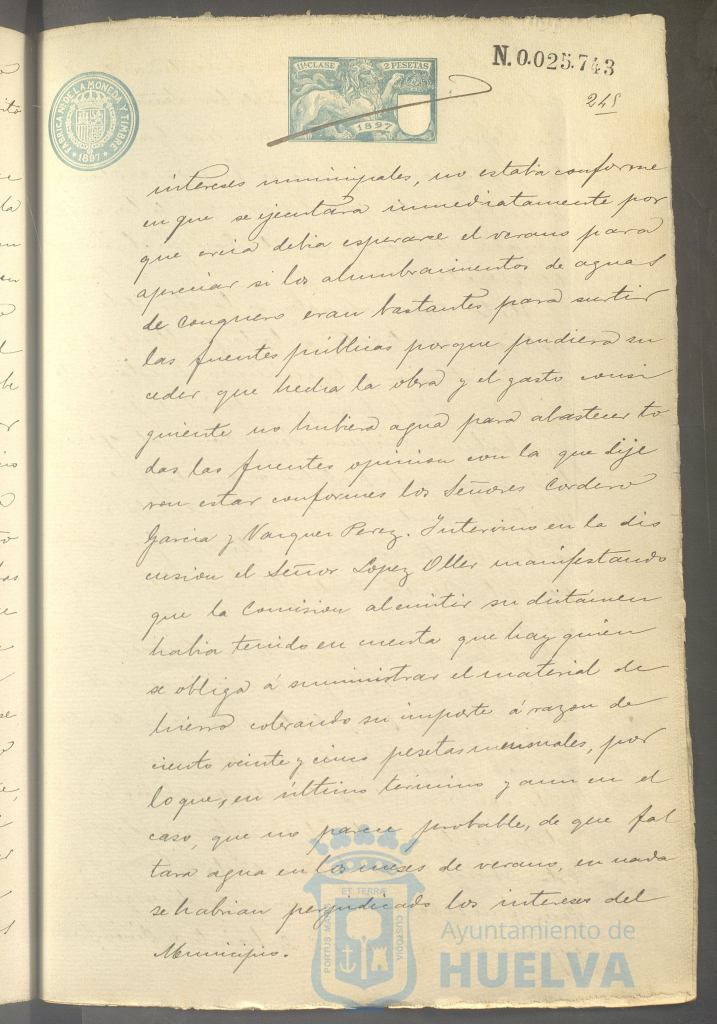 11ª CLASE 2 PESETAS
1897
FABRICA Nl. DE LA MONEDA Y TIMBRE
* 1897 *
N.0.025.743
245
intereses municipales, no estaba conforme
en que se ejecutara inmediatamente por
que creia debia esperarse el verano para
apreciar si los alumbramientos de aguas
de Conquero eran bastantes para surtir
las fuentes públicas porque pudiera su
ceder que hecha la obra y el gasto consi
guiente no hubiera agua para abastecer to
das las fuentes opinion con la que dije
ron estar conformes los Señores Cordero
Garcia y Vazquez Perez. Intervino en la dis
cusion el Señor Lopez Oller manifestando
que la Comision al emitir su dictámen
habia tenido en cuenta que hay quien
se obliga á suministrar el material de
hierro cobrando su importe á razon de
ciento veinte y cinco pesetas mensuales, por
lo que, en último término y aun en el
caso, que no parece probable, de que fal
tara agua en los meses de verano, en nada
se habrian perjudicado los intereses del
Municipio.
PORTUS MARIS ET TERRÆ CUSTODIA
Ayuntamiento de
HUELVA